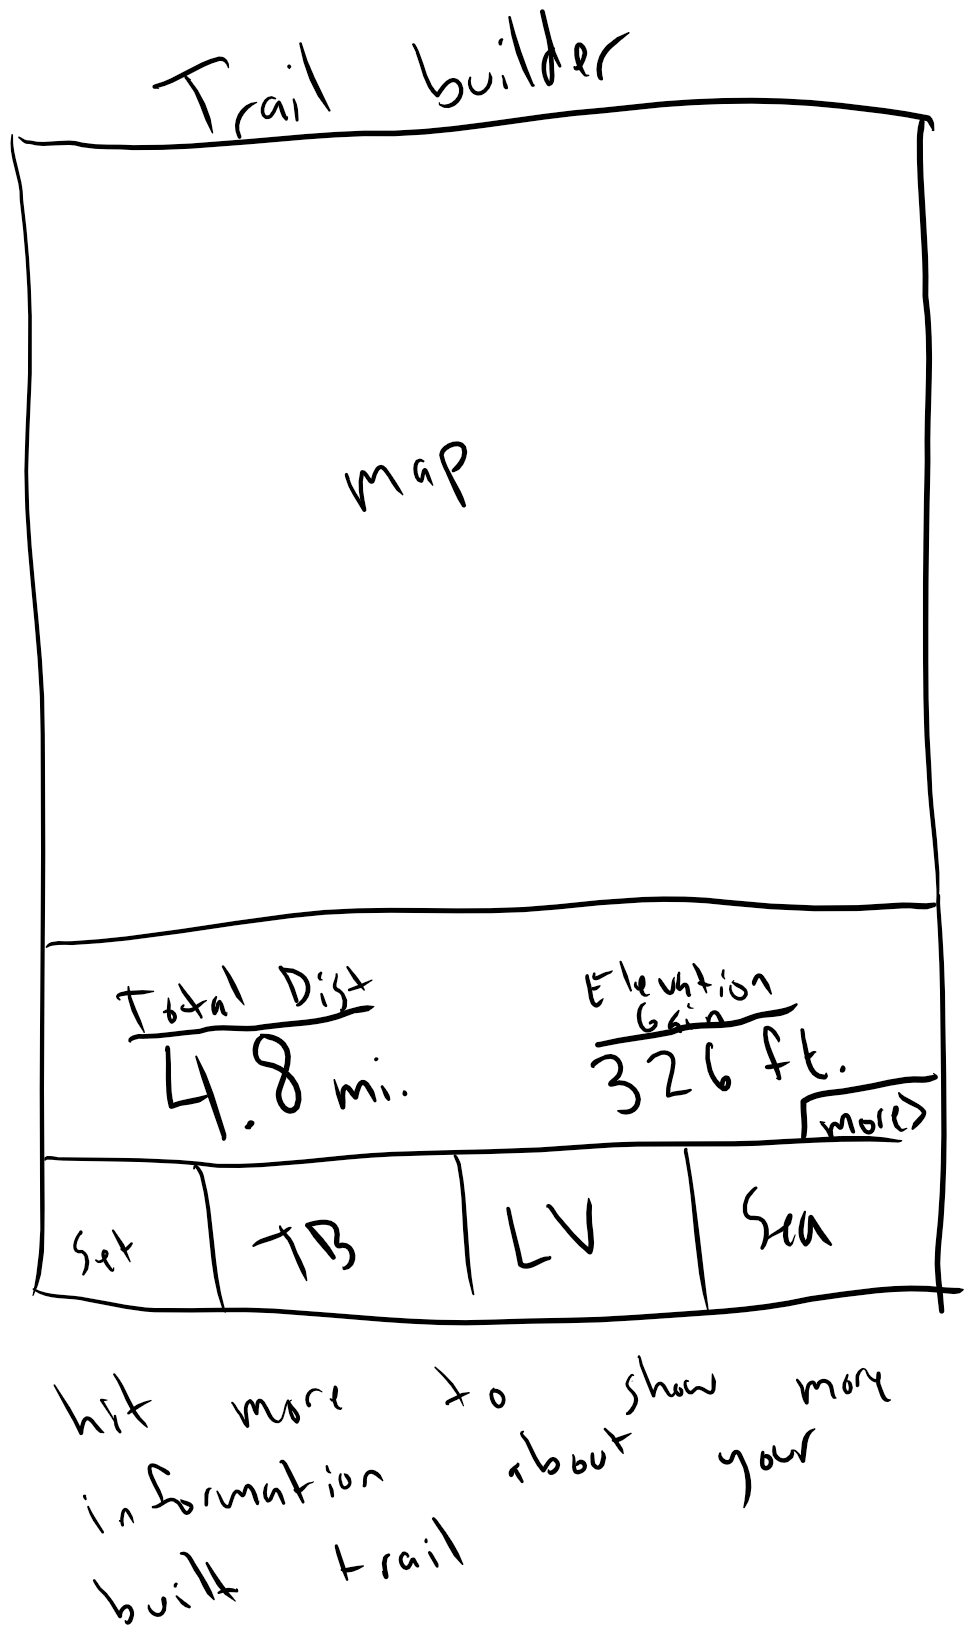 Trail builder
map
Total Dist
4.8 mi.
Elevation
Gain
326 ft.
more>
Set TB LV Sea
hit more to show more
information about your
built trail